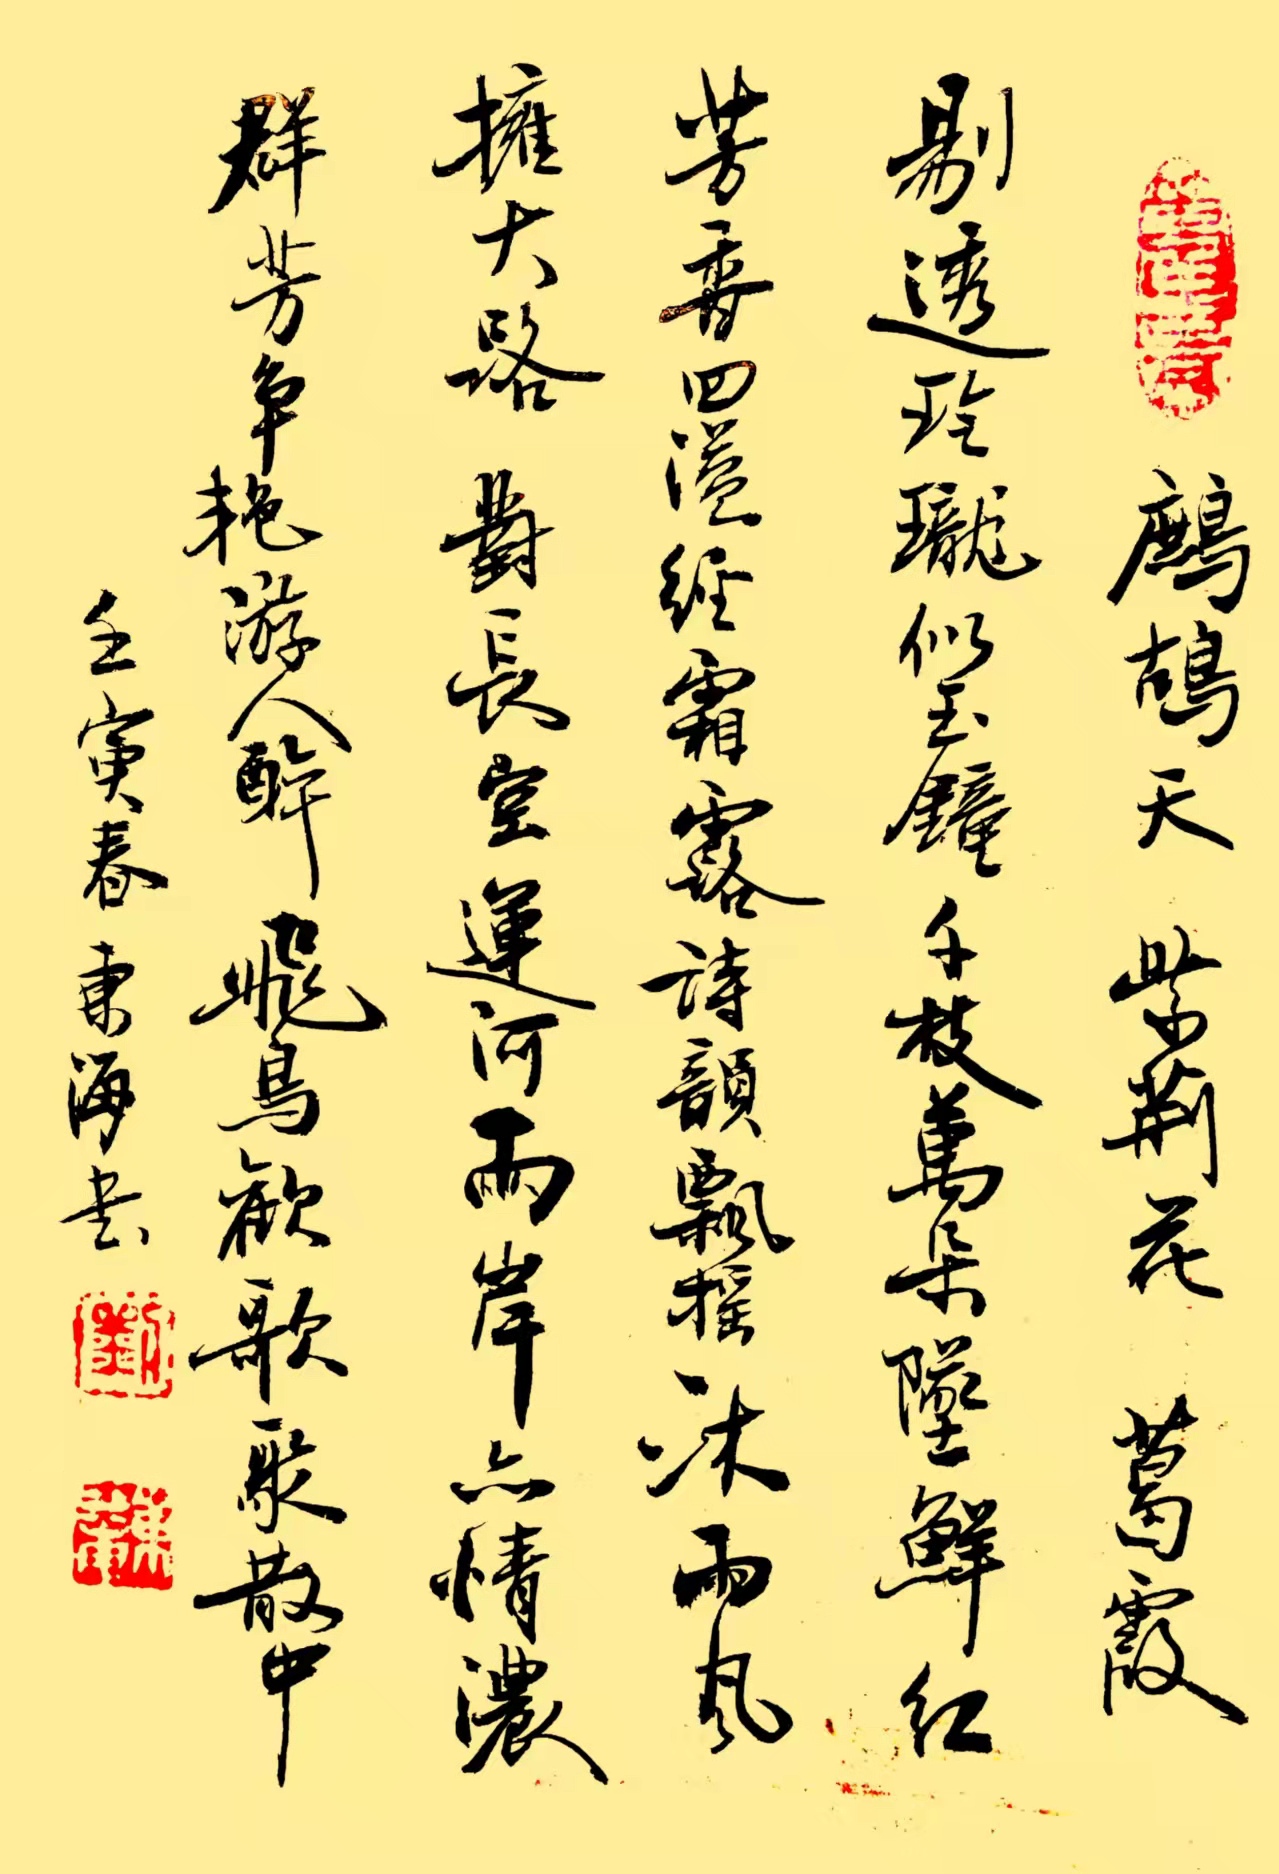 鷓鴣天 紫荆花 葛霞
剔透玲瓏似玉鐘千枝萬朵墜鮮紅
芳香四溢經霜露詩韻飄摇沐雨风
擁大路 對長空運河兩岸亦情濃
群芳争艳游人醉飛鳥歡歌聚散中
壬寅春東海书